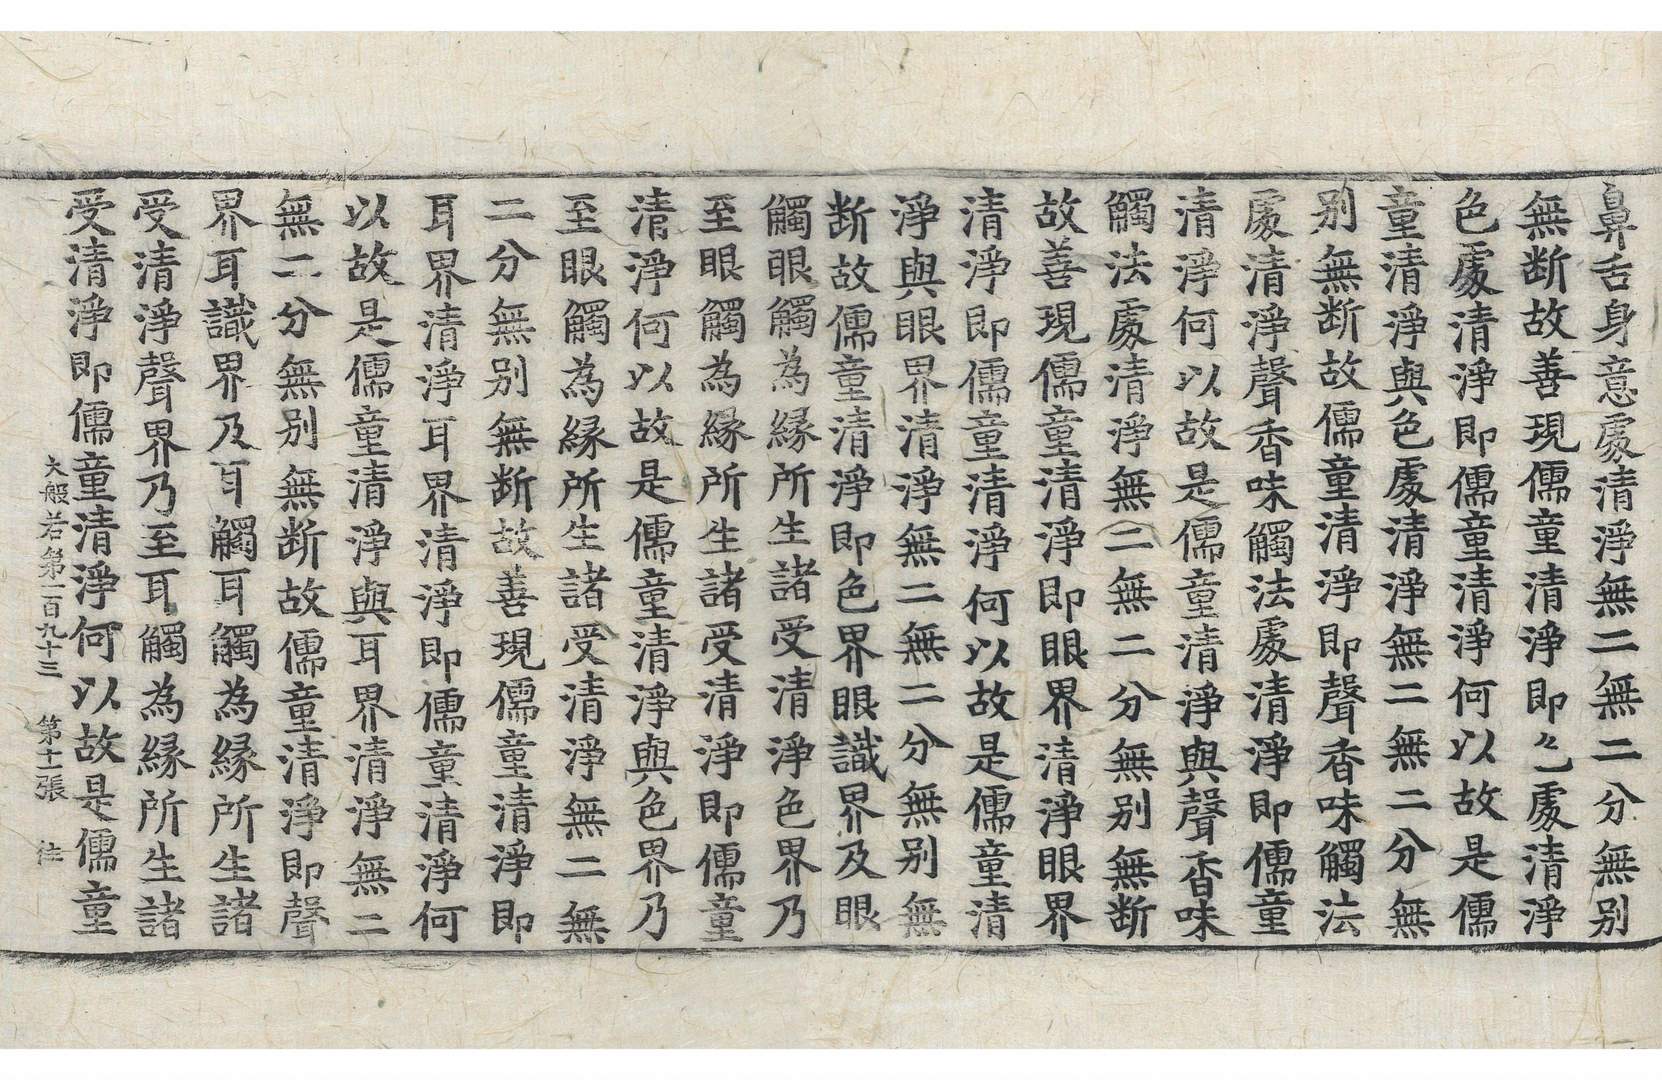 鼻舌身意處清淨無二無二分無別
無断故善現儒童清淨即色處清淨
色處清淨即儒童清淨何以故是儒
童清淨與色處清淨無二無二分無
別無断故儒童清淨即聲香味觸法
處清淨聲香味觸法處清淨即儒童
清淨何以故是儒童清淨與聲香味
觸法處清淨無二無二分無別無断
故善現儒童清淨即眼界清淨眼界
清淨即儒童清淨何以故是儒童清
淨與眼界清淨無二無二分無別無
断故儒童清淨即色界眼識界及眼
觸眼觸為緣所生諸受清淨色界乃
至眼觸為緣所生諸受清淨即儒童
清淨何以故是儒童清淨與色界乃
至眼觸為緣所生諸受清淨無二無
二分無別無断故善現儒童清淨即
耳界清淨耳界清淨即儒童清淨何
以故是儒童清淨與耳界清淨無二
無二分無別無断故儒童清淨即聲
界耳識界及耳觸耳觸為緣所生諸
受清淨聲界乃至耳觸為緣所生諸
受清淨即儒童清淨何以故是儒童
大般若第一百九十三 第十一張